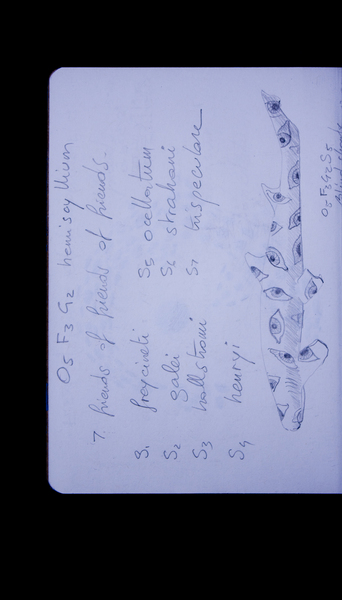 O5 F3 G2 hemiscyllium
7. friends of friends of friends.
S1 freycineti S5 ocellatum
S2 galei S6 strahani
S3 hallstromi S7 trispeculare
S4 henryi
O5 F3 G2 S5